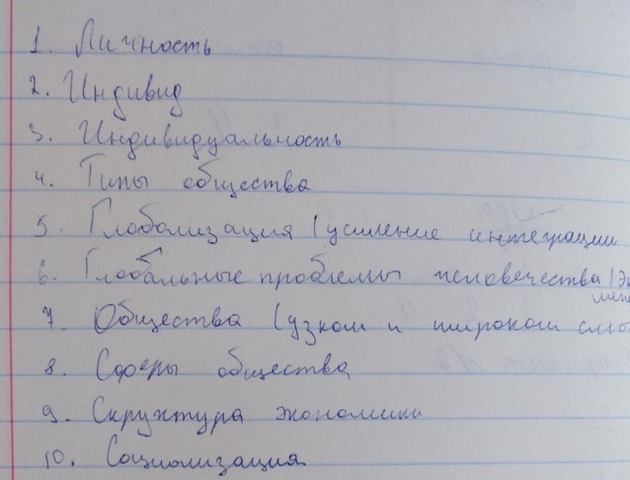 1. Личность
2. Индивид
3. Индивидуальность
4. Типы общества
5. Глобализация (усиление интеграции
6. Глобальные проблемы человечества (эк
7. Общества (узком и широком смы
8. Сферы общества
9. Скруктура экономики
10. Социализация